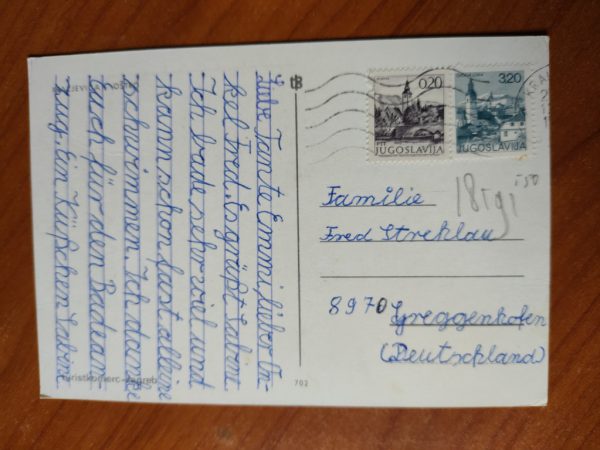 Liebe Tante Emmi, lieber On-
kel Fred. Es grüßt Sabine
Ich bade sehr viel und
kann schon fast alleine
schwimmen. Ich danke
auch für den Badean-
zug. Ein Küßchen Sabine
Turistkomerc - Zagreb
703
0,20
PTT JUGOSLAVIJA
3,20
JUGOSLAVIJA
KRA
Familie
Fred Strehlau
8970 Greggenhofen
(Deutschland)